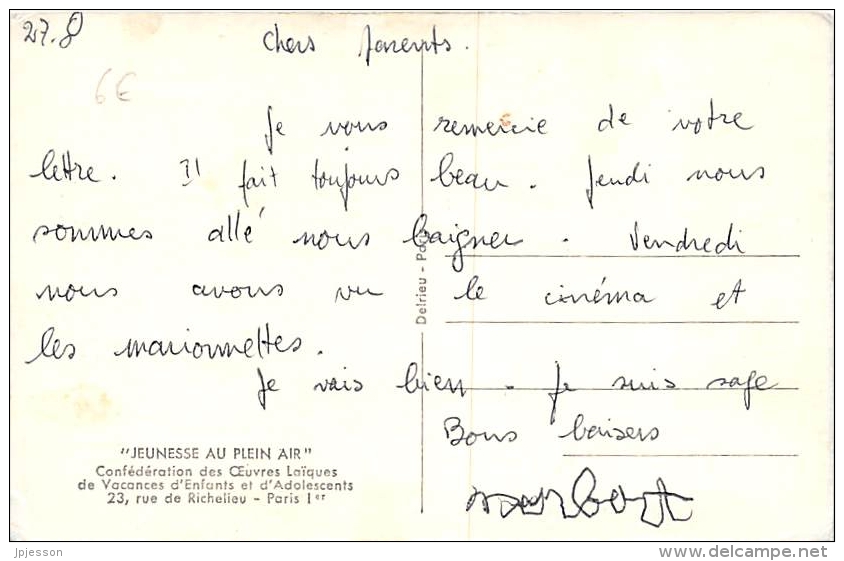 27.8
Chers Parents.
6€
Je vous remercie de votre
lettre. Il fait toujours beau. Jeudi nous
sommes allé nous baigner. Vendredi
nous avons vu le cinéma et
les marionnettes.
Je vais bien. Je suis sage
Bons baisers
"JEUNESSE AU PLEIN AIR"
Confédération des Œuvres Laïques
de Vacances d'Enfants et d'Adolescents
23, rue de Richelieu - Paris 1er
Delrieu -
jpjesson
www.delcampe.net